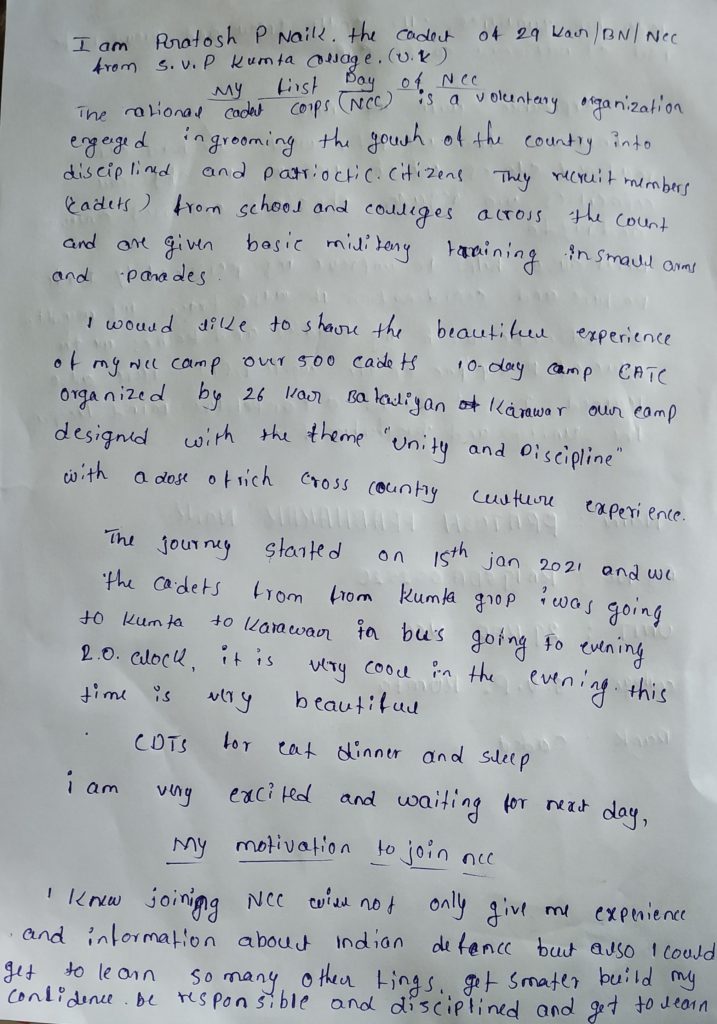 I am Pratosh P Naik. the cadect of 29 Kar/BN/Ncc
from S.V.P Kumta collage. (U.K)
My first Day of Ncc
The national cadet corps (NCC) is a voluntary organization
engeged in grooming the youth of the country into
disciplined and patrioctic. citizens They recruit members
(cadets) from school and colleges across the count
and are given basic military training in small arms
and parades.
I would like to share the beautiful experience
of my Ncc camp over 500 cadets 10-day camp CATC
organized by 26 Kar Batailiyan Karawar our camp
designed with the theme "Unity and Discipline"
with a dose of rich cross country culture experience.
The journey started on 15th jan 2021 and we
the cadets from from Kumta grop i was going
to Kumta to Karawar in bus going to evening
2.0. clock, it is very cool in the evening. this
time is very beautiful
CDTs for eat dinner and sleep
i am very excited and waiting for next day,
My motivation to join ncc
I know joining NCC will not only give me experience
and information about indian defence but also I could
get to learn so many other tings. get smater build my
confidence. be responsible and disciplined and get to learn